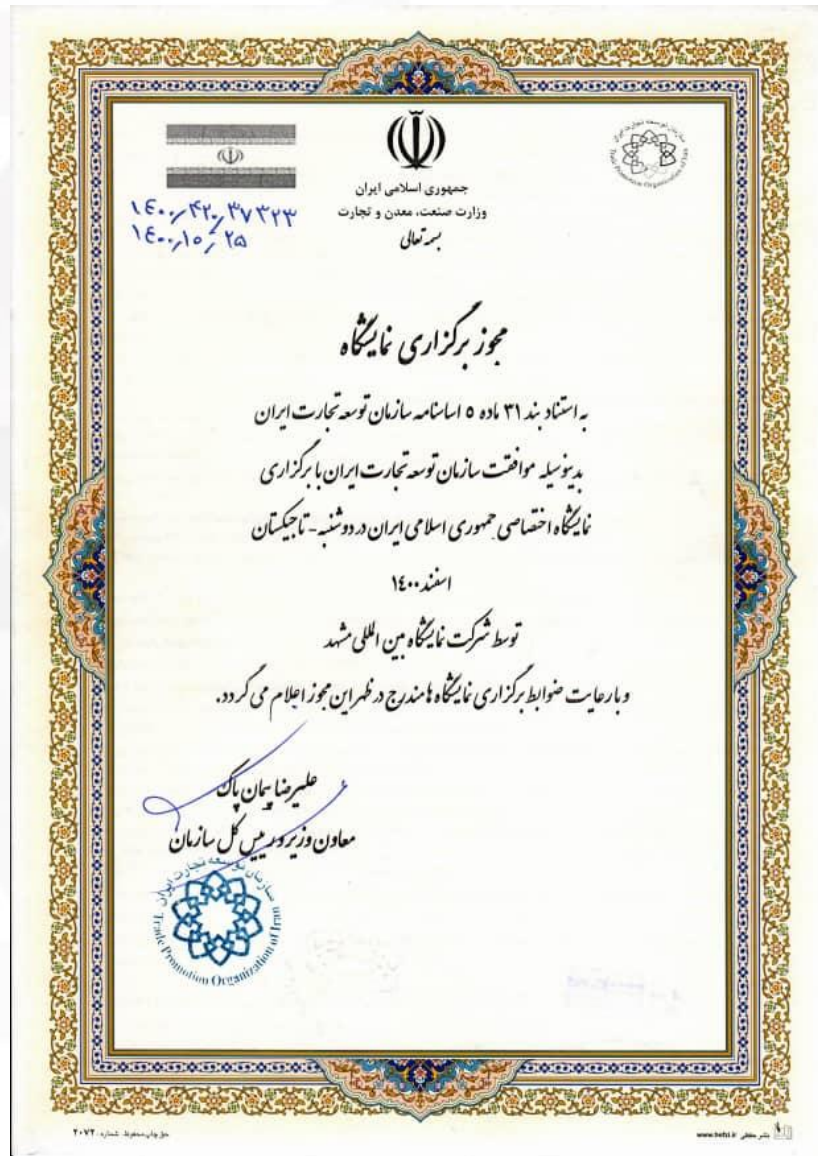 سازمان توسعه تجارت ایران
Trade Promotion Organization of Iran
جمهوری اسلامی ایران
وزارت صنعت، معدن و تجارت
بسمه تعالی
۱۴۰۰٫۴۲۰٫۳۷۳۲۳
۱۴۰۰٫۱۰٫۲۵
مجوز برگزاری نمایشگاه
به استناد بند ۳۱ ماده ۵ اساسنامه سازمان توسعه تجارت ایران
بدینوسیله موافقت سازمان توسعه تجارت ایران با برگزاری
نمایشگاه اختصاصی جمهوری اسلامی ایران در دوشنبه - تاجیکستان
اسفند ۱۴۰۰
توسط شرکت نمایشگاه بین المللی مشهد
و با رعایت ضوابط برگزاری نمایشگاه ها مندرج در ظهر این مجوز اعلام می گردد.
علیرضا پیمان پاک
معاون وزیر و رییس کل سازمان
سازمان توسعه تجارت ایران
Trade Promotion Organization of Iran
حق چاپ محفوظ. شماره: ۲۰۷۲